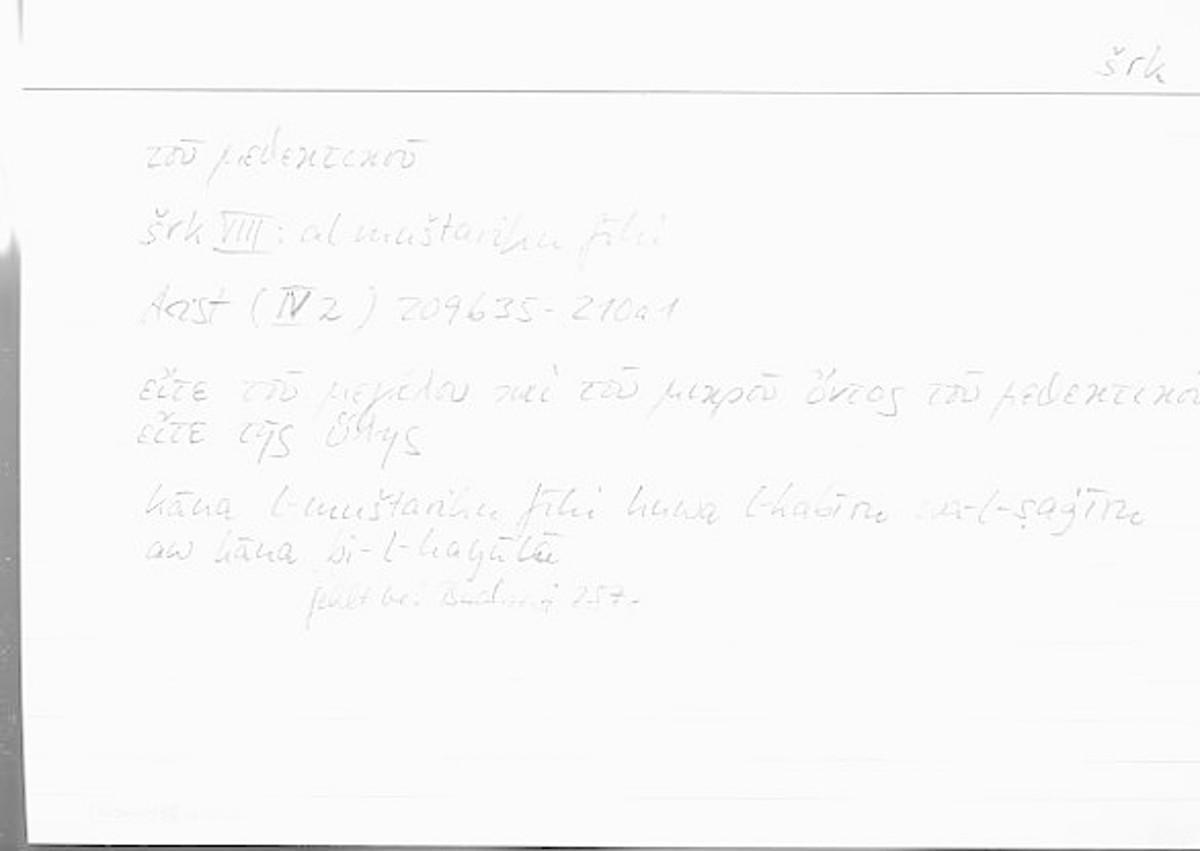 šrk
τοῦ μεθεκτικοῦ
šrk VIII: al muštariku fīhi
Arist (IV 2) 209b35-210a1
εἴτε τοῦ μεγάλου καὶ τοῦ μικροῦ ὄντος τοῦ μεθεκτικοῦ
εἴτε τῆς ὕλης
kāna l-muštariku fīhi huwa l-kabīru wa-l-ṣaġīru
aw kāna bi-l-hayūlā
fehlt bei Badawi 257.